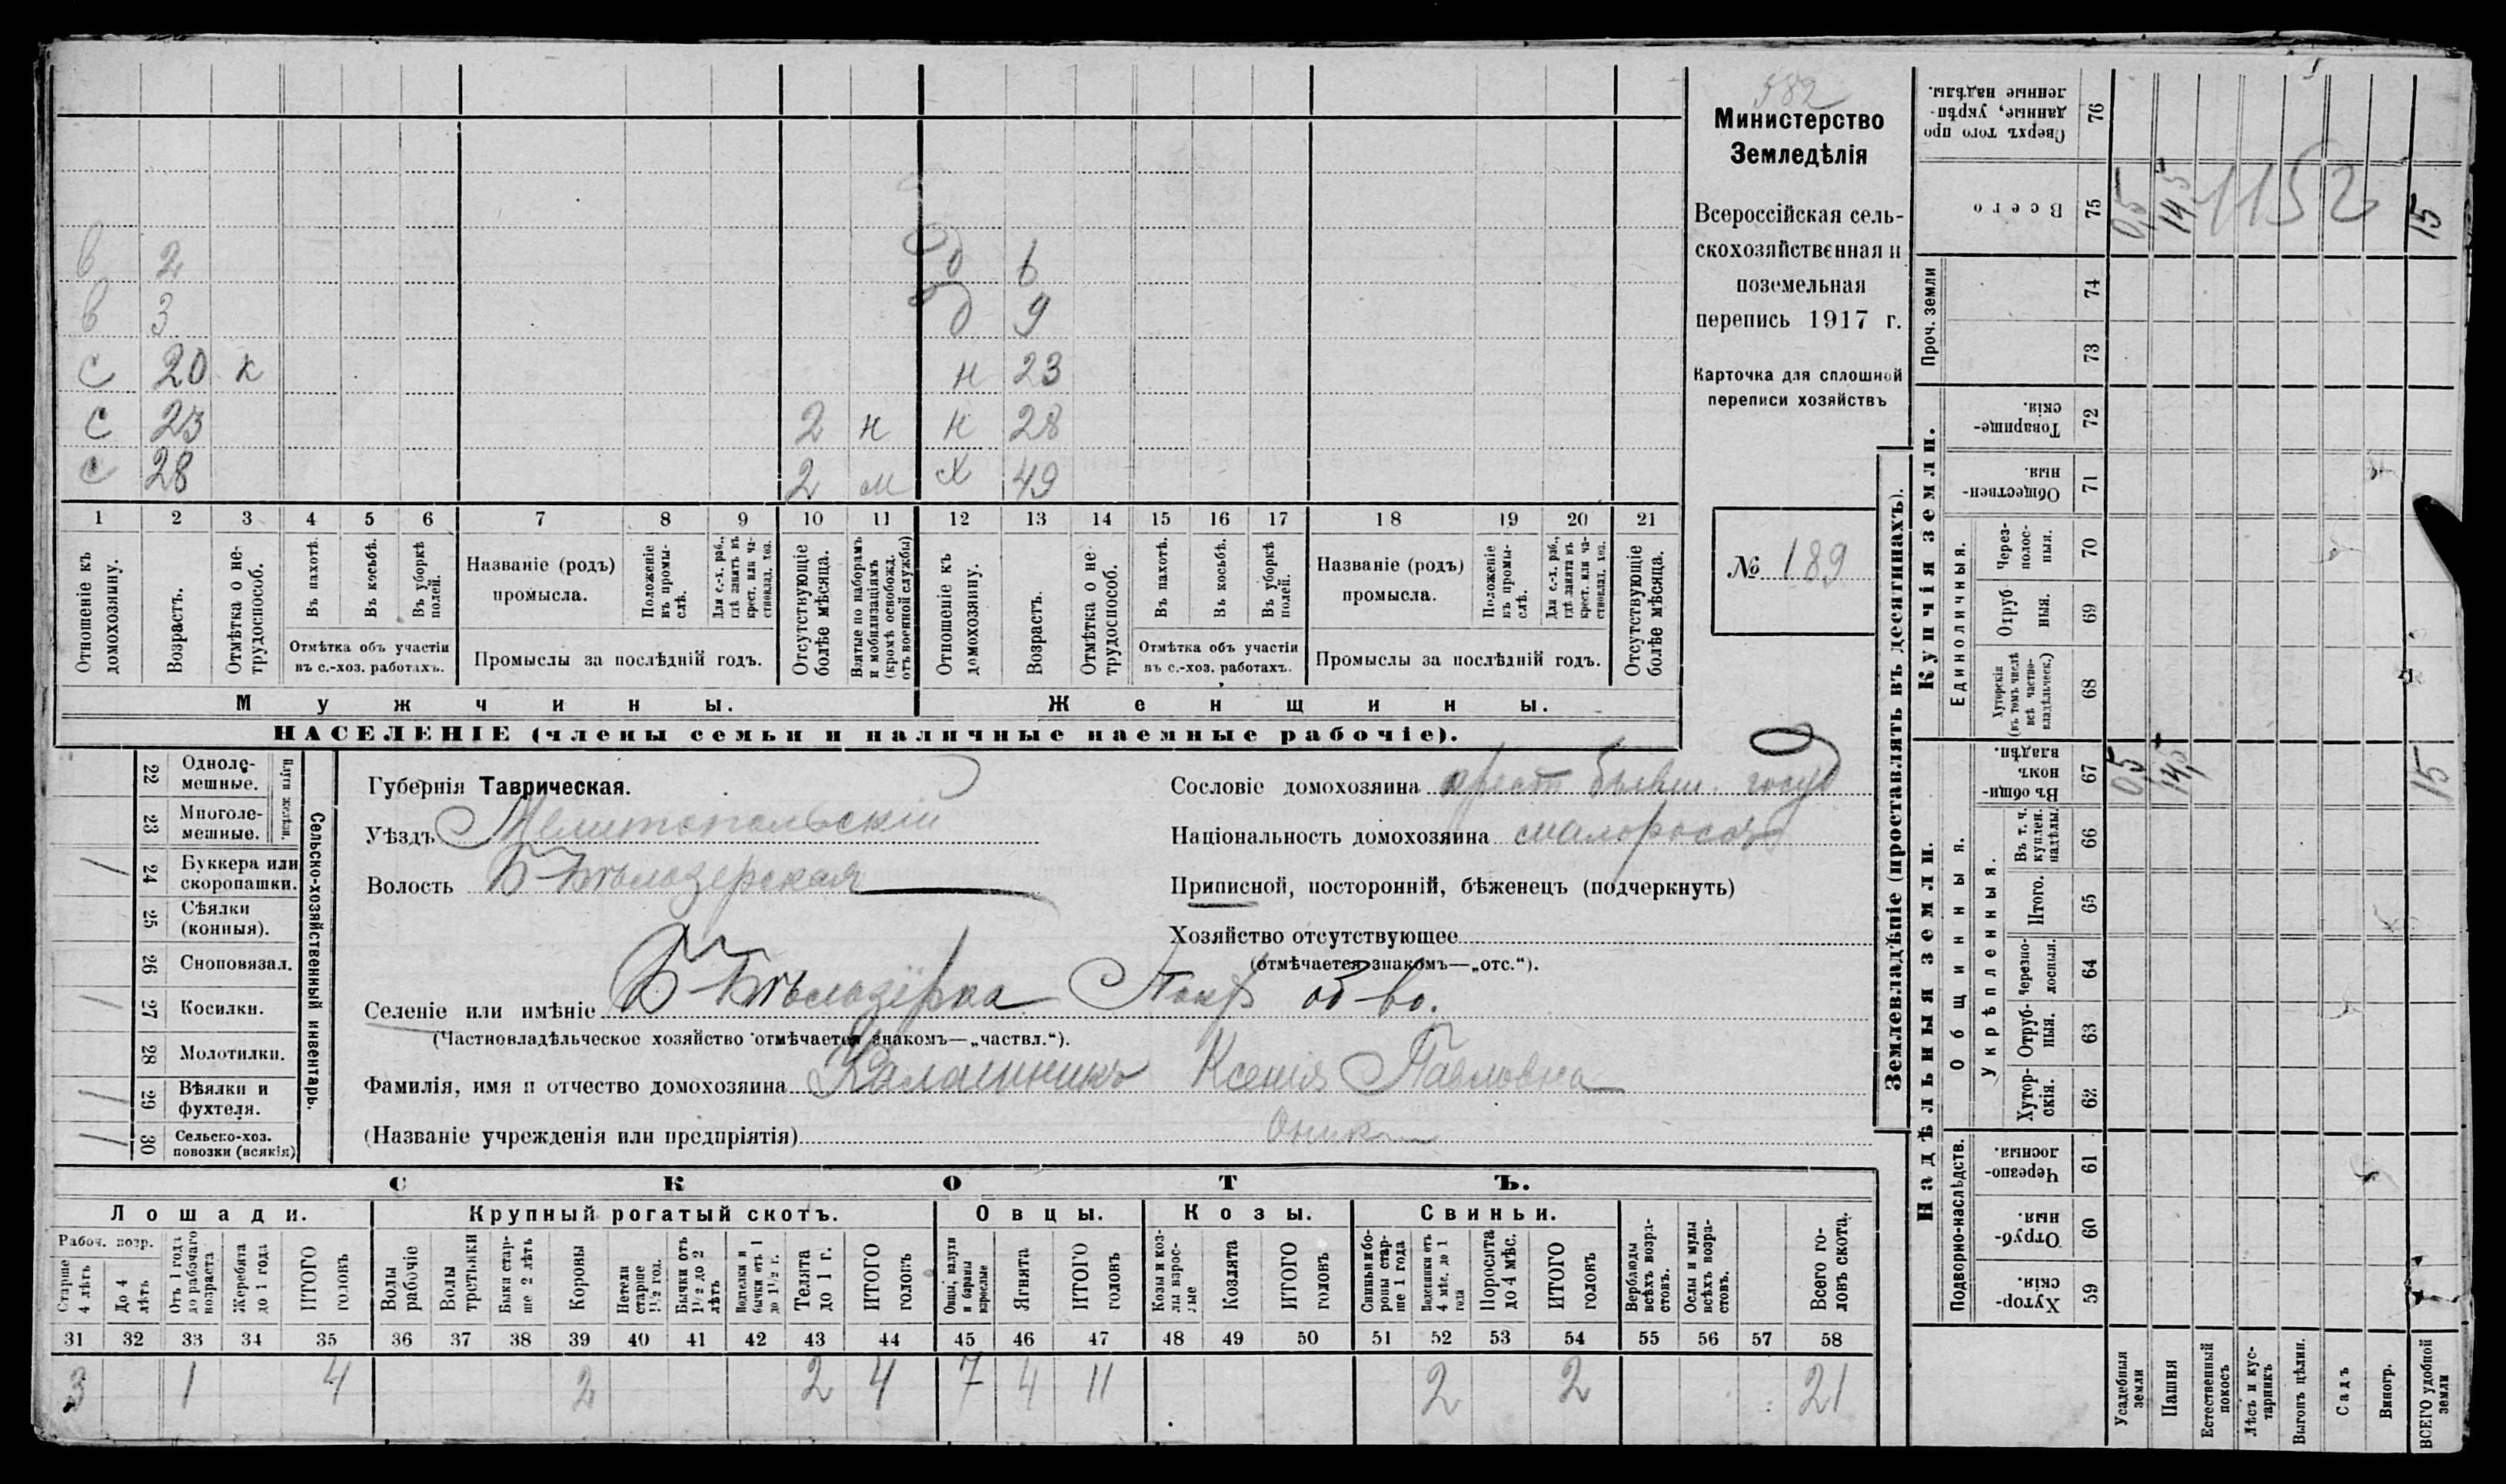 582
Министерство
Земледѣлія
Всероссійская сель-
скохозяйственная и
поземельная
перепись 1917 г.
Карточка для сплошной
переписи хозяйствъ
№ 189
в 2 д 6
в 3 д 9
с 20 к н 23
с 23 2 н н 28
с 28 2 м х 49
1 2 3 4 5 6 7 8 9 10 11 12 13 14 15 16 17 18 19 20 21
Отношеніе къ домохозяину.
Возрастъ.
Отмѣтка о не-трудоспособ.
Въ пахотѣ.
Въ косьбѣ.
Въ уборкѣ полей.
Отмѣтка объ участіи
въ с.-хоз. работахъ.
Названіе (родъ)
промысла.
Положеніе въ промы-слѣ.
Для с.-х. раб., гдѣ занятъ въ крест. или ча-стновлад. хоз.
Промыслы за послѣдній годъ.
Отсутствующіе болѣе мѣсяца.
Взятые по наборамъ и мобилизаціямъ (кромѣ освобожд. отъ военной службы)
Отношеніе къ домохозяину.
Возрастъ.
Отмѣтка о не-трудоспособ.
Въ пахотѣ.
Въ косьбѣ.
Въ уборкѣ полей.
Отмѣтка объ участіи
въ с.-хоз. работахъ.
Названіе (родъ)
промысла.
Положеніе въ промы-слѣ.
Для с.-х. раб., гдѣ занята въ крест. или ча-стновлад. хоз.
Промыслы за послѣдній годъ.
Отсутствующіе болѣе мѣсяца.
Мужчины. Женщины.
НАСЕЛЕНІЕ (члены семьи и наличные наемные рабочіе).
Сельско-хозяйственный инвентарь.
Плуги желѣзн.
22 Одноле-мешные.
23 Многоле-мешные.
/ 24 Буккера или скоропашки.
25 Сѣялки (конныя).
26 Сноповязал.
/ 27 Косилки.
28 Молотилки.
/ 29 Вѣялки и фухтеля.
/ 30 Сельско-хоз. повозки (всякія)
Губернія Таврическая.
Уѣздъ Мелитопольскій
Волость Б-Бѣлозерская
Селеніе или имѣніе Б-Бѣлозёрка Покр об-во.
(Частновладѣльческое хозяйство отмѣчается знакомъ—„частвл.“).
Фамилія, имя и отчество домохозяина Калашникъ Ксенія Павловна
(Названіе учрежденія или предпріятія)
Сословіе домохозяина крест бывш. госуд
Національность домохозяина малороссъ
Приписной, посторонній, бѣженецъ (подчеркнуть)
Хозяйство отсутствующее
(отмѣчается знакомъ—„отс.“).
СКОТЪ.
Лошади. Крупный рогатый скотъ. Овцы. Козы. Свиньи.
Рабоч. возр.
Старше 4 лѣтъ
До 4 лѣтъ
Отъ 1 года до рабочаго возраста
Жеребята до 1 года
ИТОГО головъ
Волы рабочіе
Волы третьяки
Быки стар-ше 2 лѣтъ
Коровы
Нетели старше 1½ год.
Бычки отъ 1½ до 2 лѣтъ
Подтелки и бычки отъ 1 до 1½ г.
Телята до 1 г.
ИТОГО головъ
Овцы, валухи и бараны взрослые
Ягнята
ИТОГО головъ
Козы и коз-лы взрос-лые
Козлята
ИТОГО головъ
Свиньи и бо-ровы стар-ше 1 года
Подсвинки отъ 4 мѣс. до 1 года
Поросята до 4 мѣс.
ИТОГО головъ
Верблюды всѣхъ возра-стовъ.
Ослы и мулы всѣхъ возра-стовъ.
Всего го-ловъ скота.
31 32 33 34 35 36 37 38 39 40 41 42 43 44 45 46 47 48 49 50 51 52 53 54 55 56 57 58
3 1 4 2 2 4 7 4 11 2 2 21
Землевладѣніе (проставлять въ десятинахъ).
Сверхъ того про данные, укрѣп-ленные надѣлы. 76
Всего 75 0,5 14,5 15
1152
Проч. земли 74
73
Купчія земли.
Товарище-скія. 72
Обществен-ныя 71
Единоличныя.
Через-полос-ныя. 70
Отруб ныя. 69
Хуторскія (въ томъ числѣ всѣ частно-владѣльческ.) 68
Надѣльныя земли.
Общинныя.
Въ общи-номъ владѣн. 67 0,5 14,5 15
Укрѣпленныя.
Въ т. ч. куплен. надѣлы 66
Итого. 65
Черезпо-лосныя. 64
Отруб-ныя. 63
Хутор-скія. 62
Подворно-наслѣдств.
Черезпо-лосныя. 61
Отруб-ныя 60
Хутор-скія. 59
Усадебныя земли
Пашня
Естественный покосъ
Лѣсъ и кус-тарникъ
Выгонъ цѣлин.
Садъ
Виногр.
ВСЕГО удобной земли